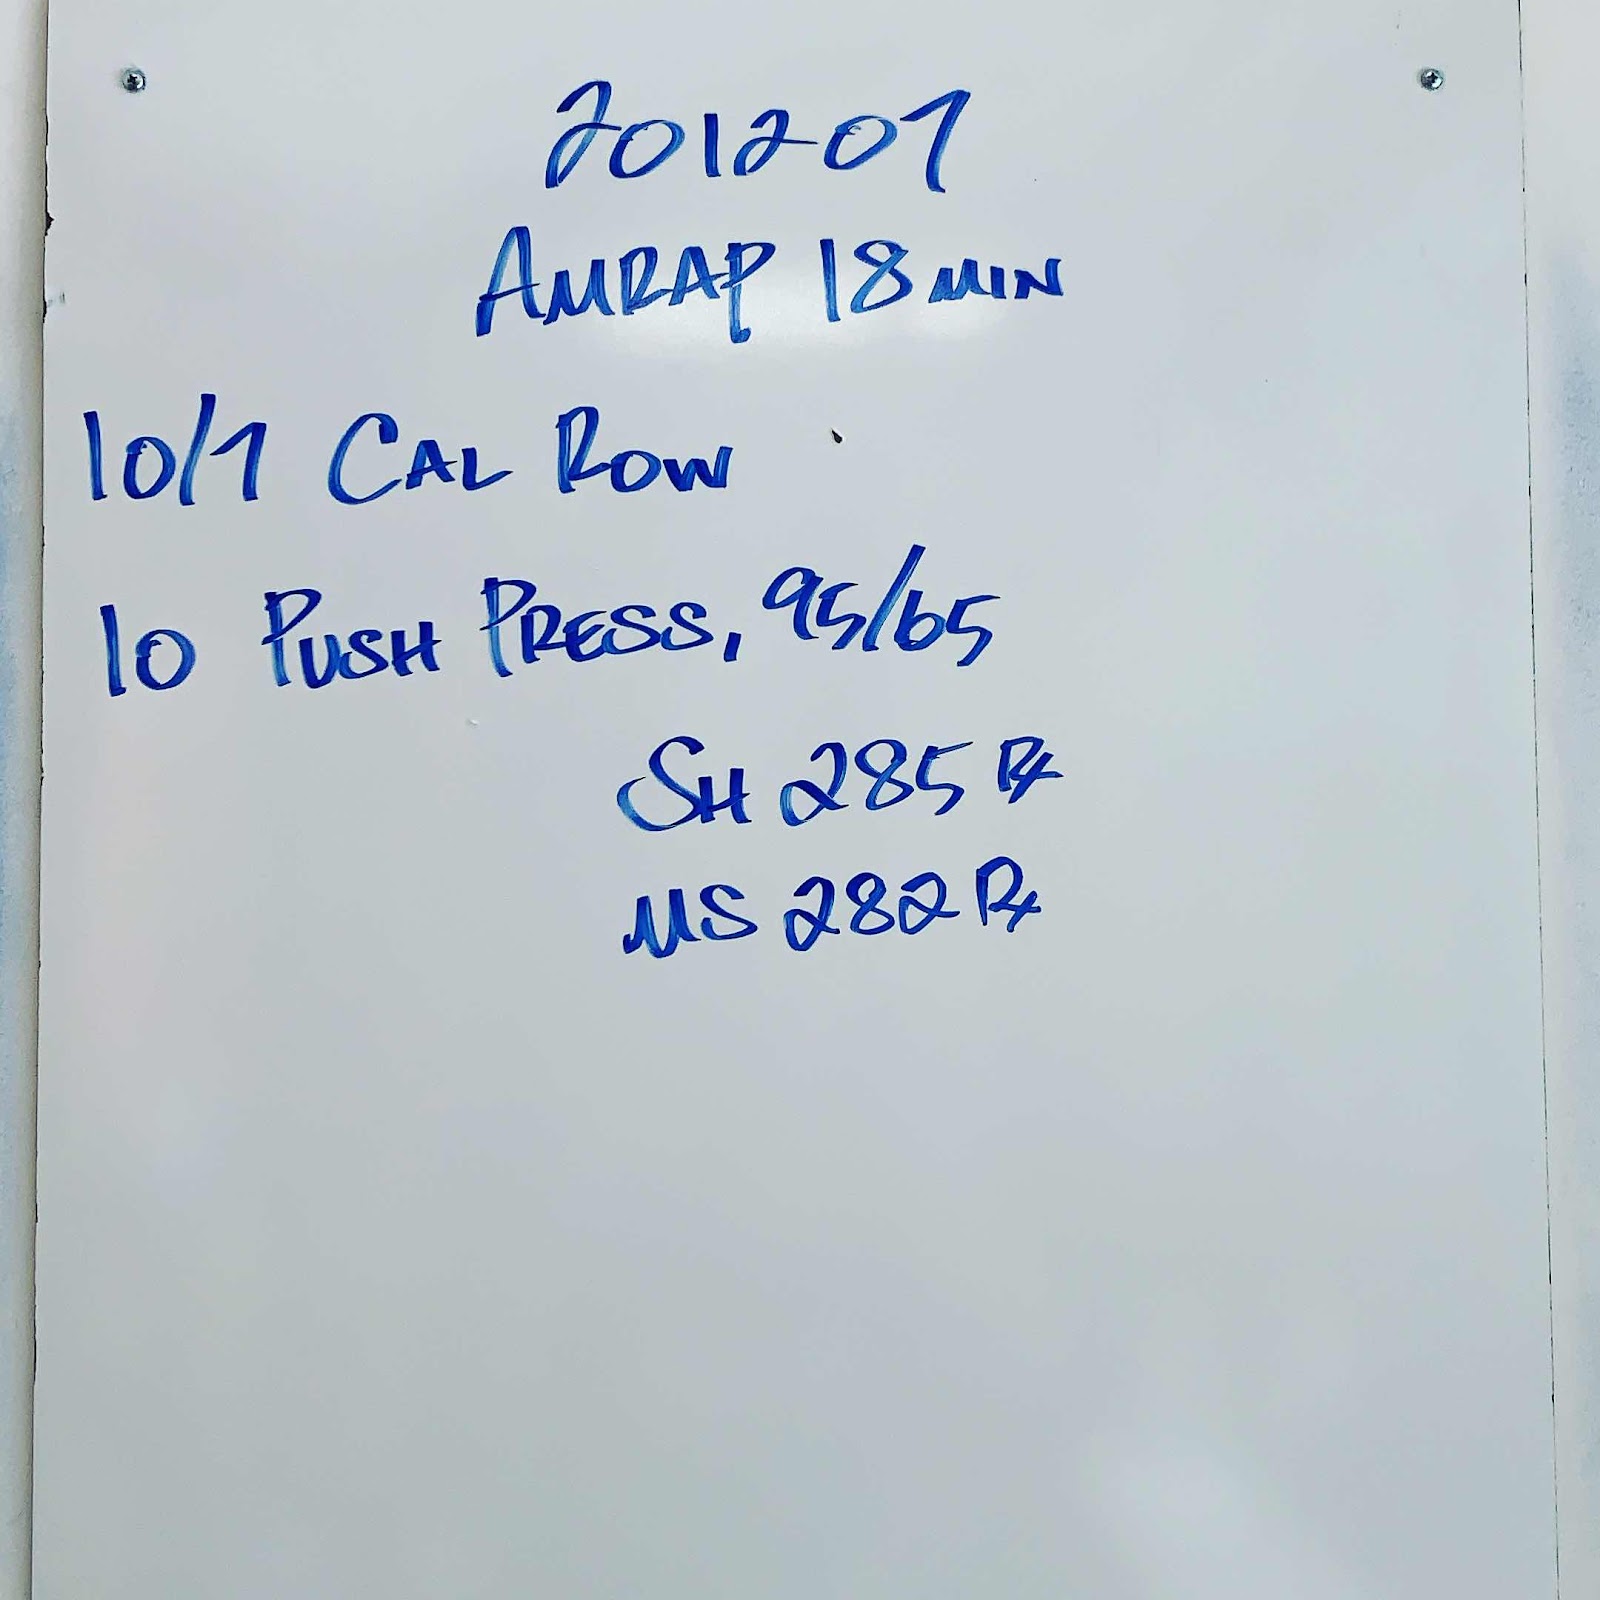 201207
AMRAP 18 MIN
10/7 CAL ROW
10 PUSH PRESS, 95/65
SH 285 Rx
MS 282 Rx